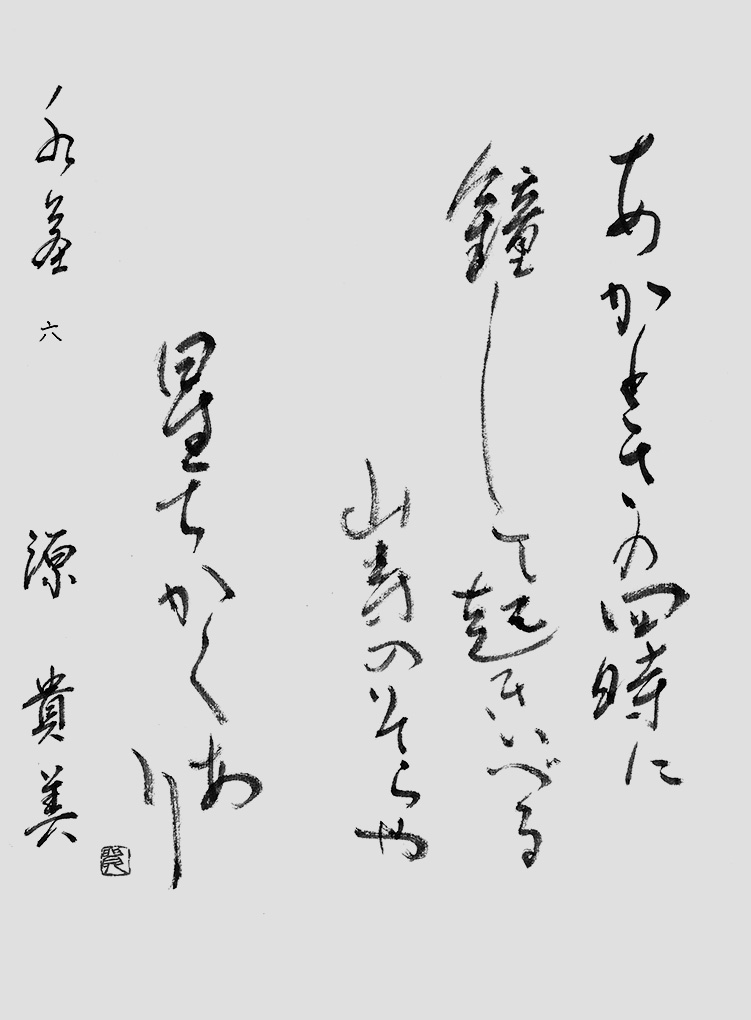 あかときの四時に
鐘して起きいづる
山寺のそらや
星ちかくあり
水茎 六 源 貴美